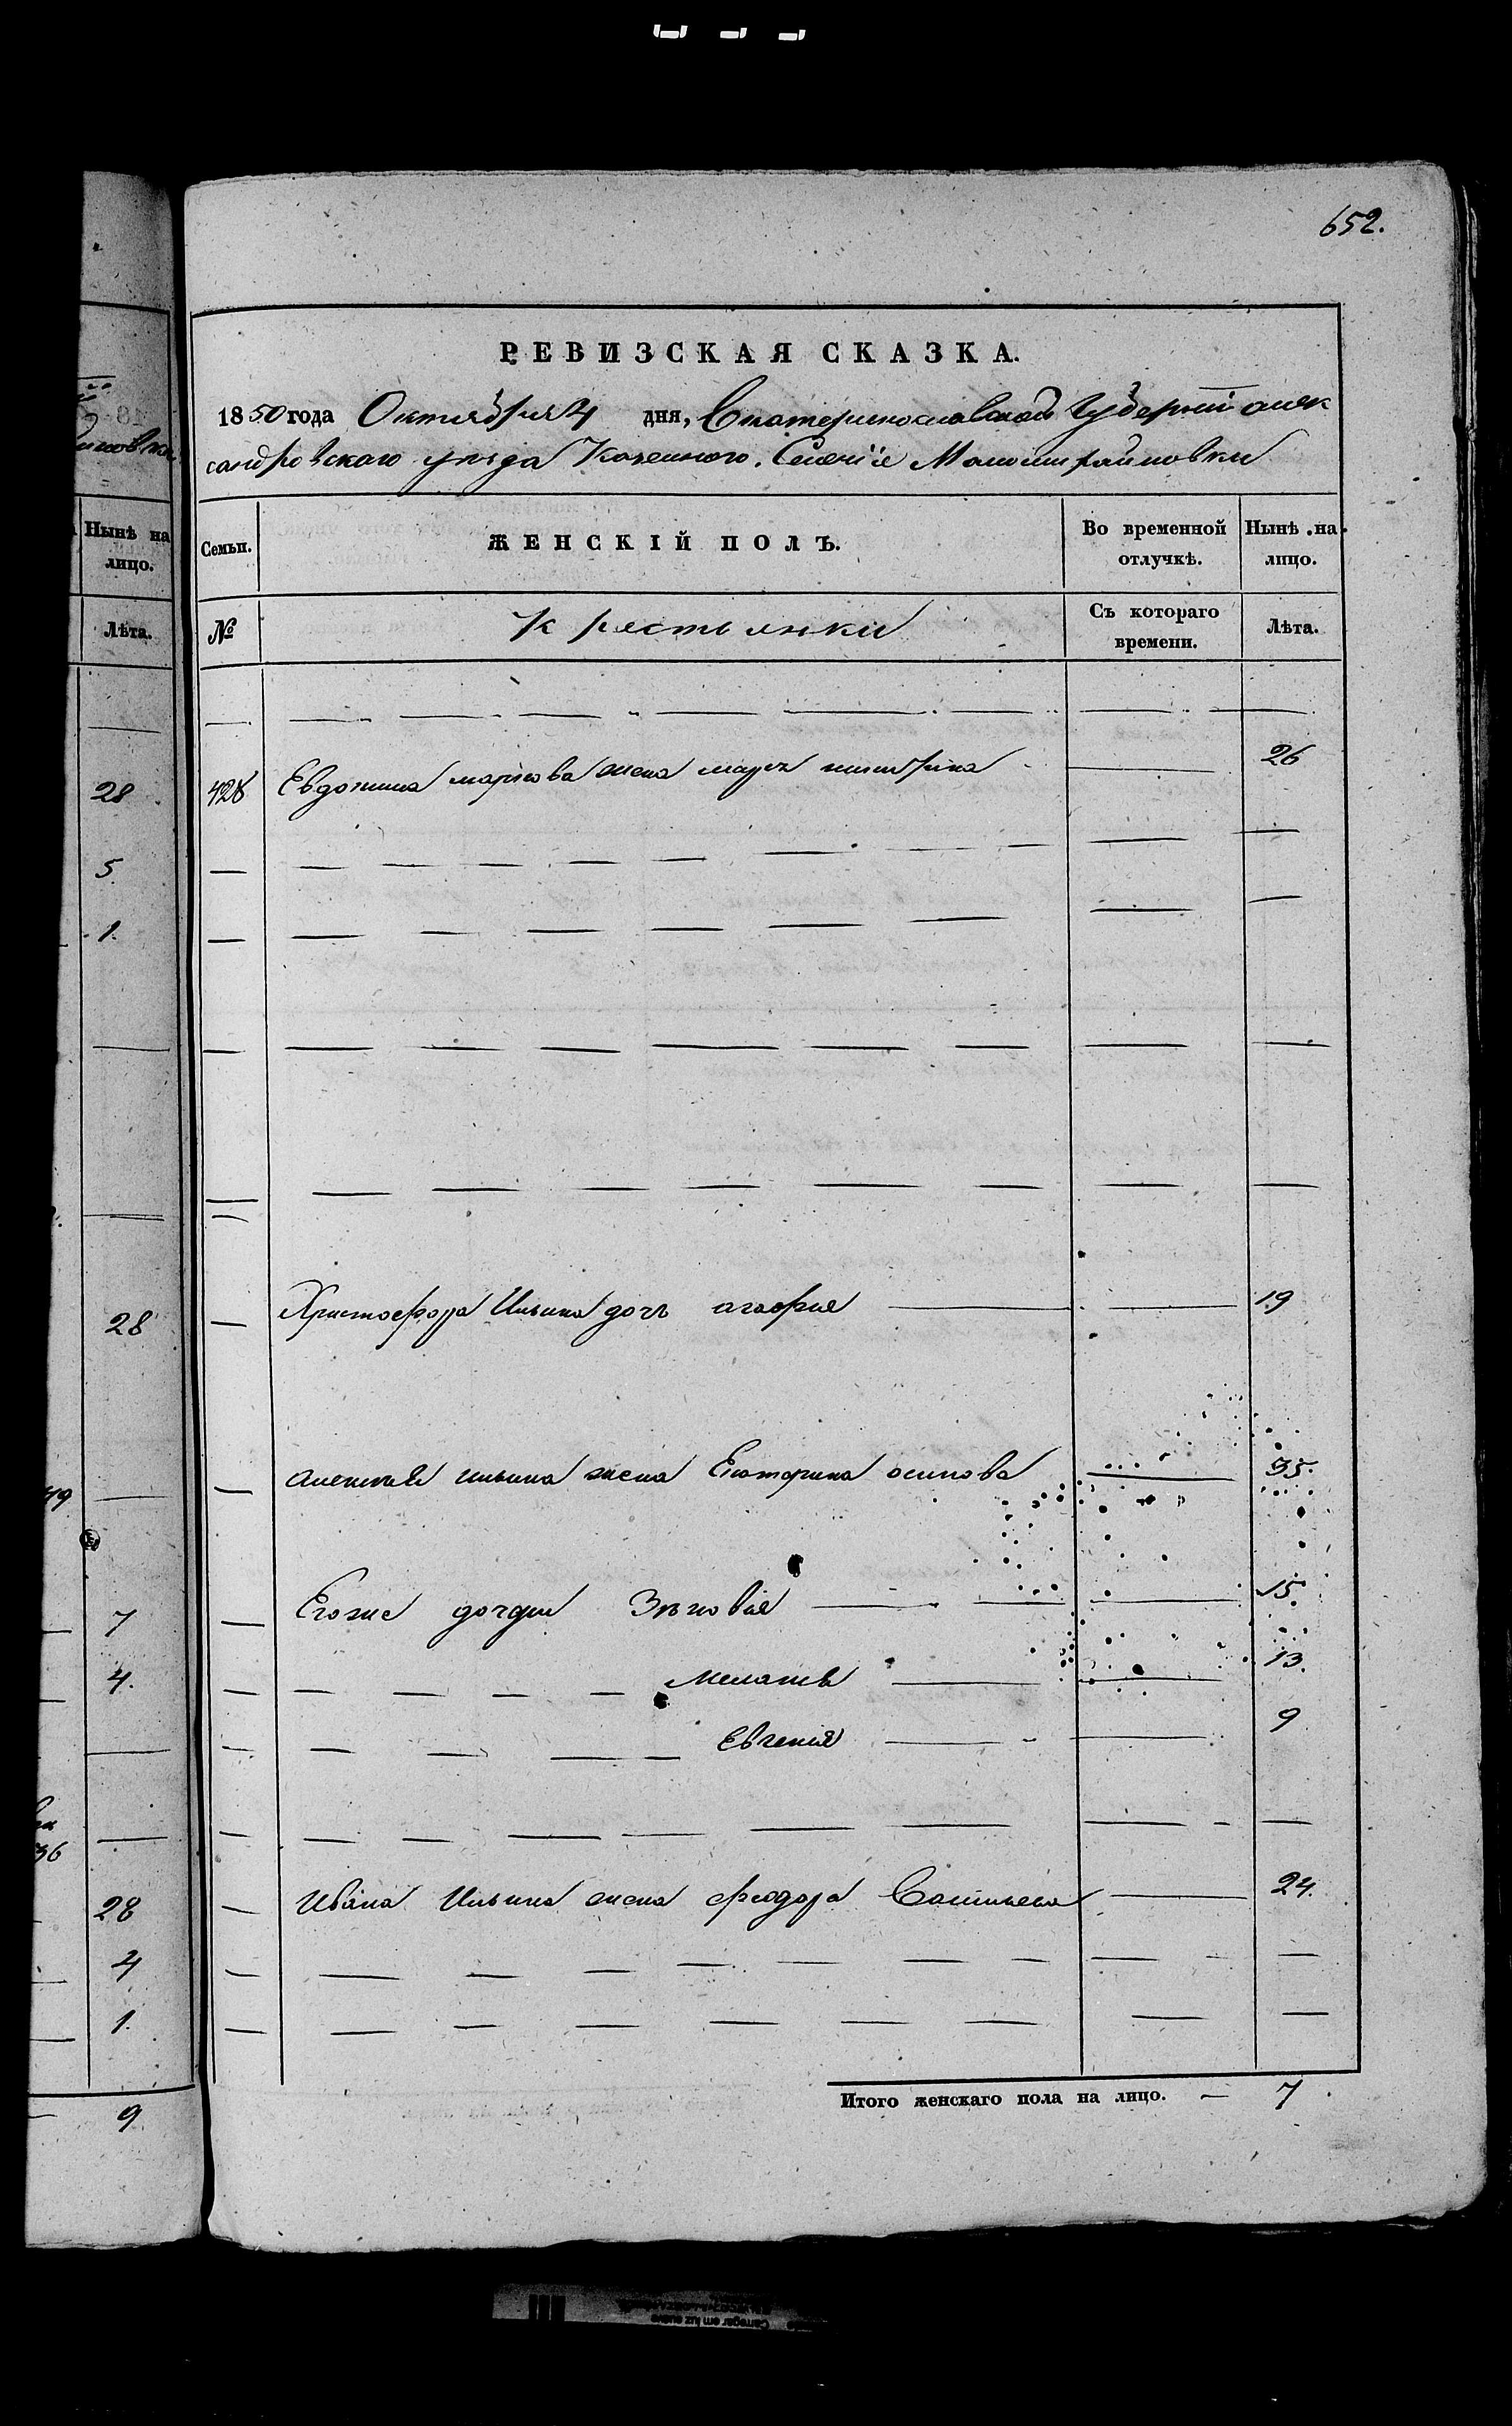 652.
РЕВИЗСКАЯ СКАЗКА.
1850 года Октября 4 дня, Екатеринославской губернии алек
сандровскаго уезда Казенного. Селенie
Семьи. ЖЕНСКIЙ ПОЛЪ. Во временной отлучкѣ. Нынѣ на лицо.
№ Крестьянки Съ котораго времени. Лѣта.
428 Евдокима маркова жена 26
Христофора Ильина дочь агафия 19
алексея ильина жена Екатерина осипова 35.
Егоже дочери Зѣновiя 15.
Мелания 13.
Евгения 9
Ивана Ильина жена феодора 24.
Итого женскаго пола на лицо. — 7
Нынѣ на
лицо.
Лѣта.
28
5
1.
28
7
4.
28
4
1.
9